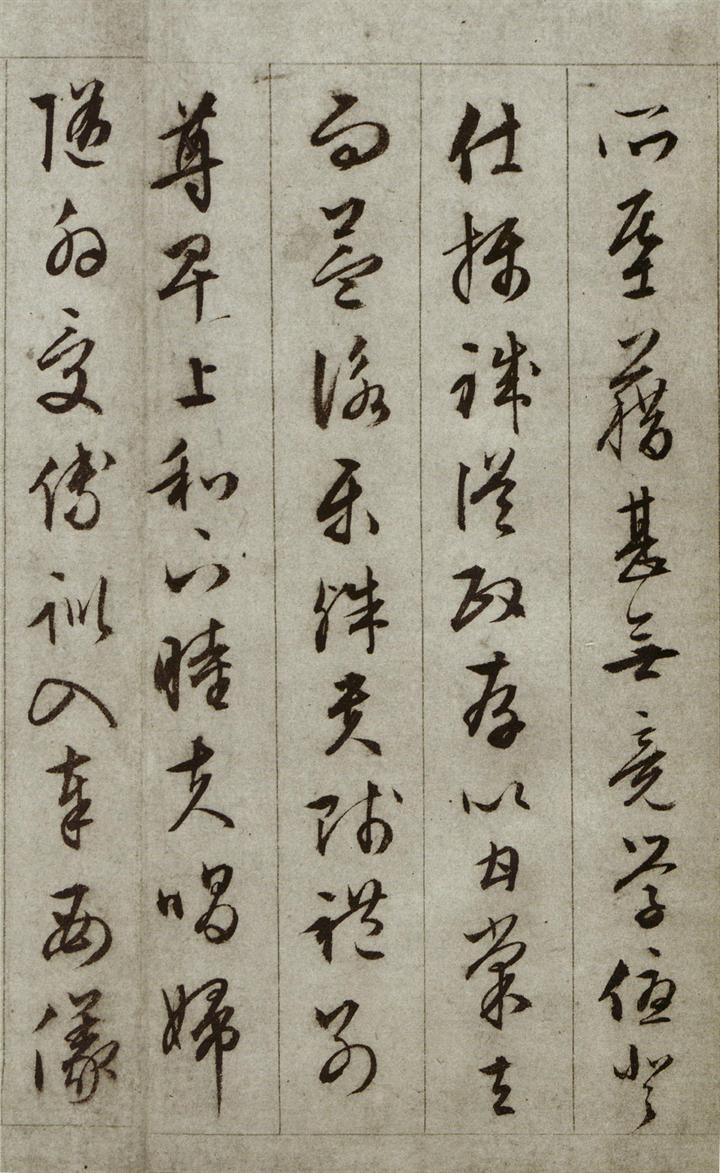 所基藉甚無竟学優登
仕攝職從政存以甘棠去
而益詠樂殊貴賤禮別
尊卑上和下睦夫唱婦
隨外受傅訓入奉母儀